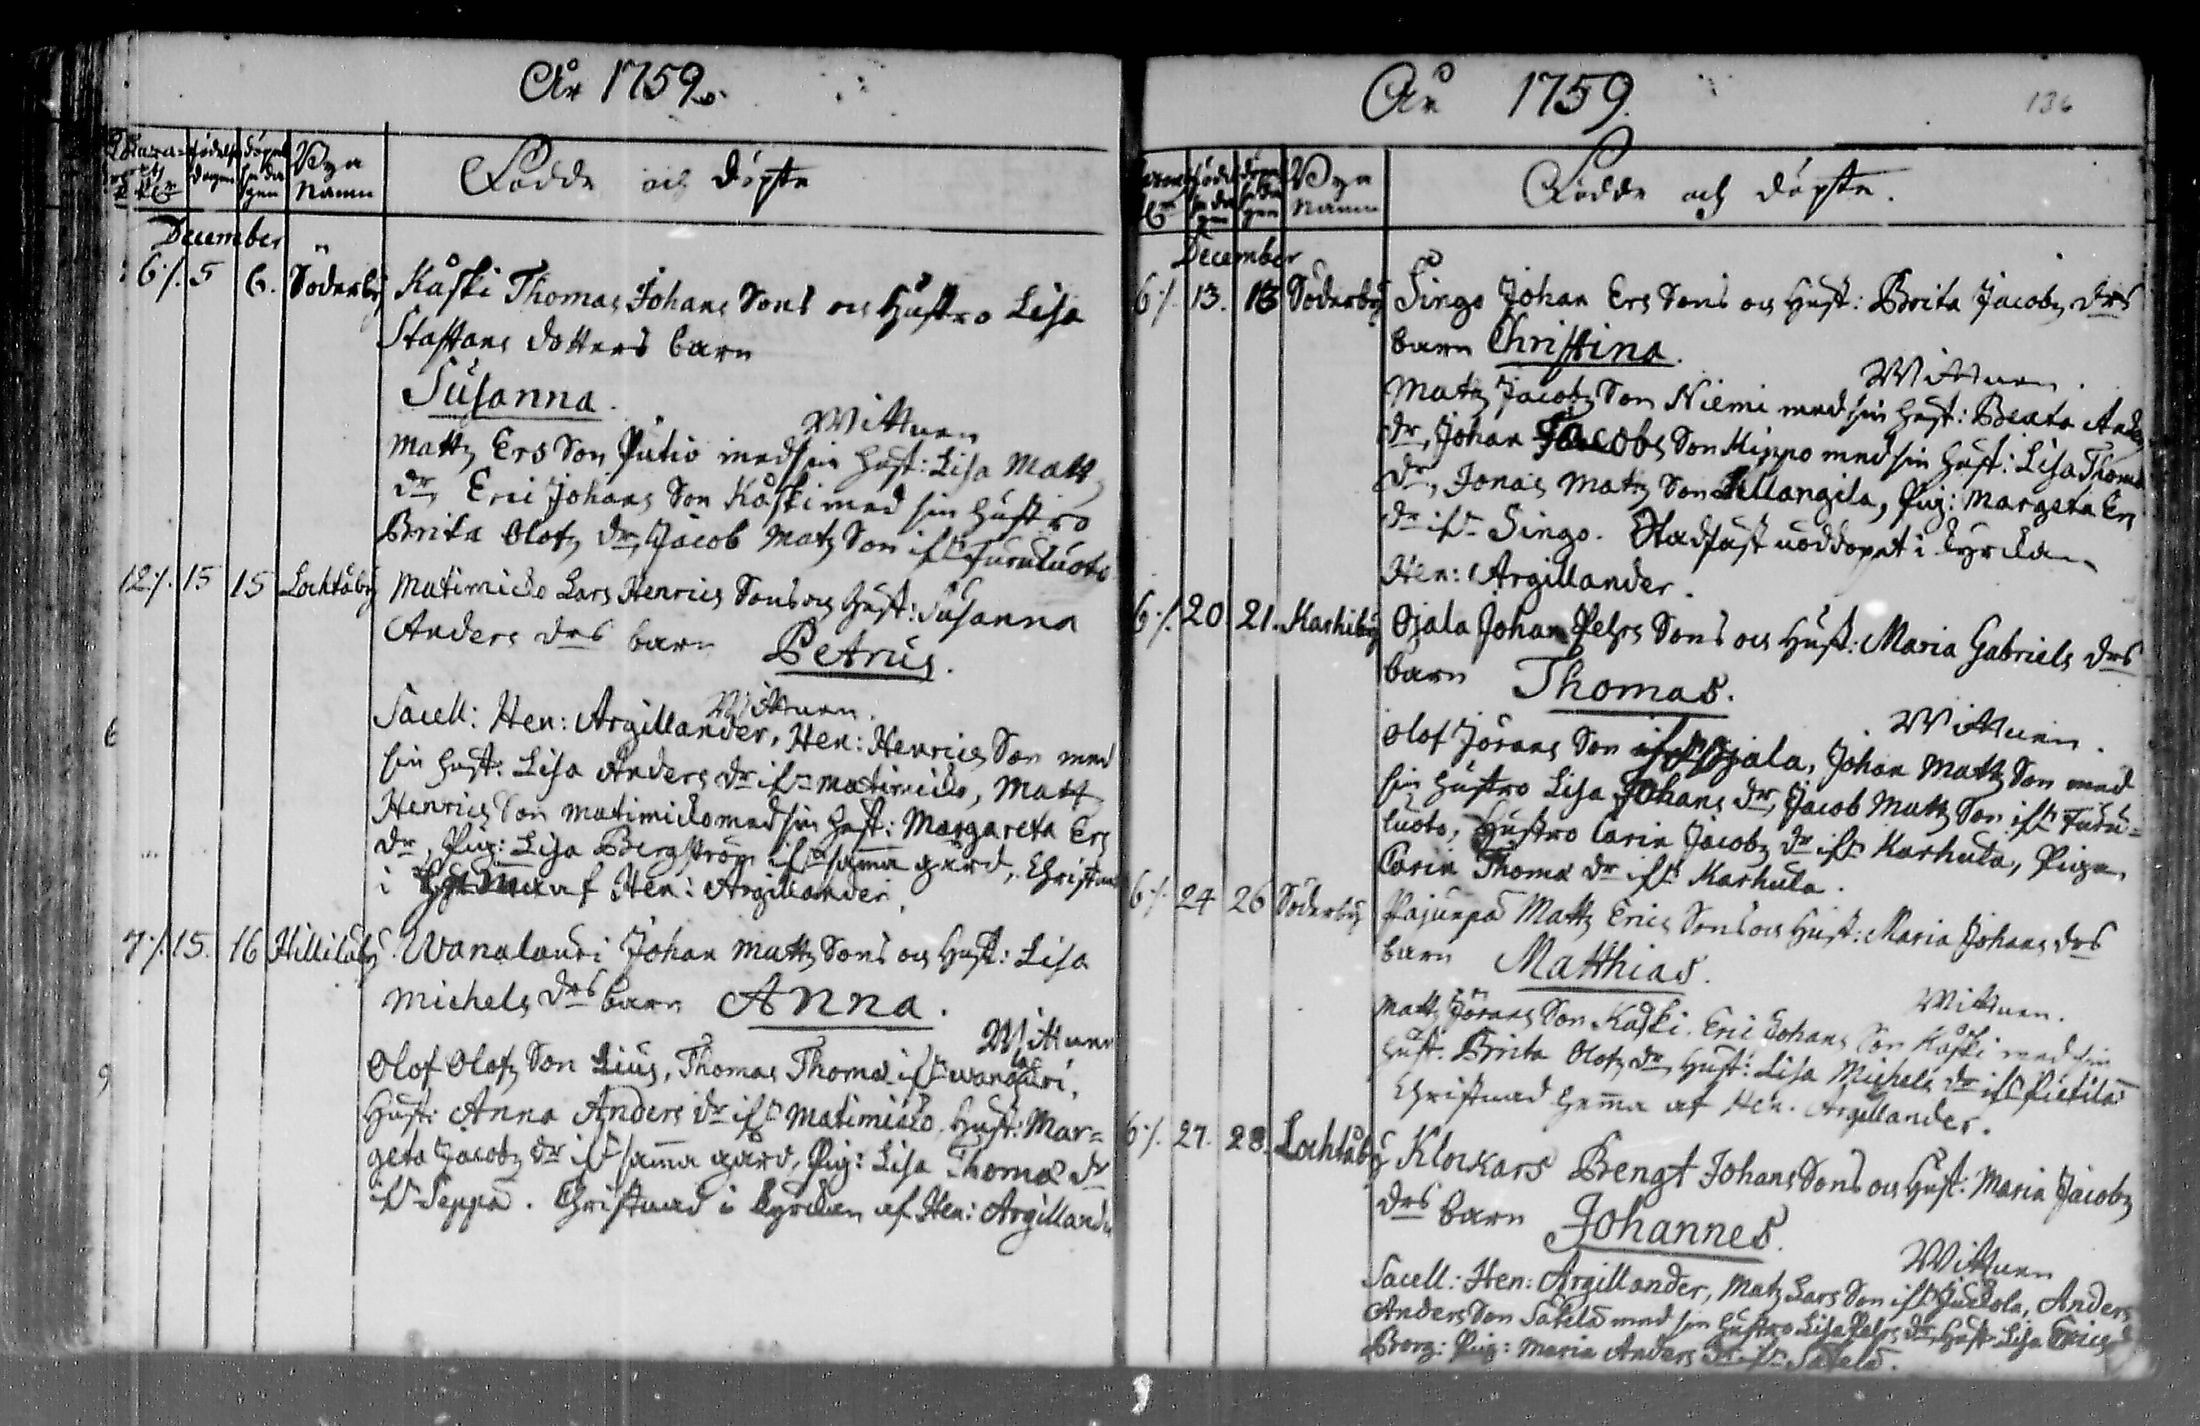 År 1759.
födelse döpelse Bya
dagen sedagen Namn
Födde och döpte
December
6/. 5 6. Söderby Kåski Thomas Johans Sons och Hustro Lisa
Staffans dotters barn
Susanna.
Wittnen
Matts Ers Son Putio med sin Hust: Lisa Matts
dr, Eric Johans Son Kåski med sin Hustro
Brita Olofs dr, Jacob Mats Son ifrn Furuluoto
12/. 15 15 Lochtåby Matimicko Lars Henrics Sons och Hust: Susanna
Anders drs barn Petrus.
Wittnen.
Sacell: Hen: Argillander, Hen: Henrics Son med
sin Hust: Lisa Anders dr ifrn Matimicko, Matts
Henrics Son Matimicko med sin Hust: Margareta Ers
dr, Pig: Lisa Bergström ifrn samma gård, Christnad
i af Hen: Argillander.
7/. 15. 16 Hillilaby Wanalauri Johan Matts Sons och Hust: Lisa
Michels drs barn Anna.
Wittnen
Olof Olofs Son Lius, Thomas Thomæ ifrn Wanalauri,
Hust: Anna Anders dr ifrn Matimicko, Hust: Mar=
geta Jacobs dr ifrn samma gård, Pig: Lisa Thomæ dr
ifrn Seppä. Christnad i Kyrckan af Hen: Argillander
År 1759.
136
födelse döpelse Bya
dagen dagen Namn
Födde och döpte.
December
6/. 13. 13 Söderby Singo Johan Ers Sons och Hust: Brita Jacobs drs
barn Christina.
Wittnen.
Mats Jacobs Son Niemi med sin Hust: Beata Anders
dr, Johan Jacobs Son Hippo med sin Hust: Lisa Thomæ
dr, Jonas Mats Son Pig: Margeta Ers
dr ifrn Singo. Stadfäst nöddopet i Kyrckan
Hen: Argillander.
6/. 20 21. Karhiby Ojala Johan Pehrs Sons och Hust: Maria Gabriels drs
barn Thomas.
Wittnen.
Olof Jörans Son ifrn Ojala, Johan Matts Son med
sin Hustro Lisa Johans dr, Jacob Matts Son ifrn Furu=
luoto, Hustro Carin Jacobs dr ifrn Karhula, Pigan
Carin Thomæ dr ifrn Karhula.
6/. 24 26 Söderby Pajunpä Matts Erics Sons och Hust: Maria Johans drs
barn Matthias.
Wittnen.
Matts Jörans Son Kåski. Eric Johans Son Kåski med sin
Hust. Brita Olofs dr, Hust: Lisa Michels dr ifrn Pietilä
Christnad hemma af Hen. Argillander.
6/. 27. 28. Lochtåby Klockars Bengt Johans Sons och Hust: Maria Jacobs
drs barn Johannes.
Wittnen
Sacell: Hen: Argillander, Mats Lars Son ifrn Junkola, Anders
Anders Son Säkelä med sin Hustro Lisa Pehrs dr, Hust: Lisa Erics
Brorg: Pig: Maria Anders dr ifrn Säkelä.